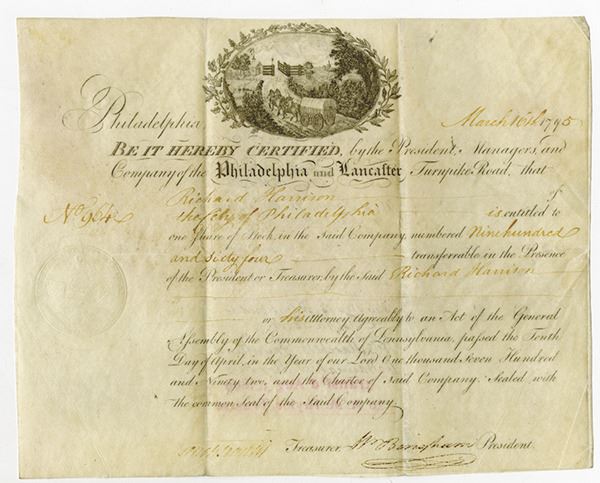 Philadelphia, March 16th 1795
BE IT HEREBY CERTIFIED, by the President, Managers, and
Company of the Philadelphia and Lancaster Turnpike Road, that
Richard Harrison of
No 964 the City of Philadelphia is entitled to
one Share of Stock, in the Said Company, numbered Nine hundred
and Sixty four transferrable in the Presence
of the President or Treasurer, by the said Richard Harrison
or his Attorney Agreeably to an Act of the General
Assembly of the Commonwealth of Pennsylvania, passed the Tenth
Day of April, in the Year of our Lord One thousand Seven Hundred
and Ninety two, and the Charter of Said Company: Sealed with
the common Seal of the Said Company.
Treasurer, Wm Bingham President.